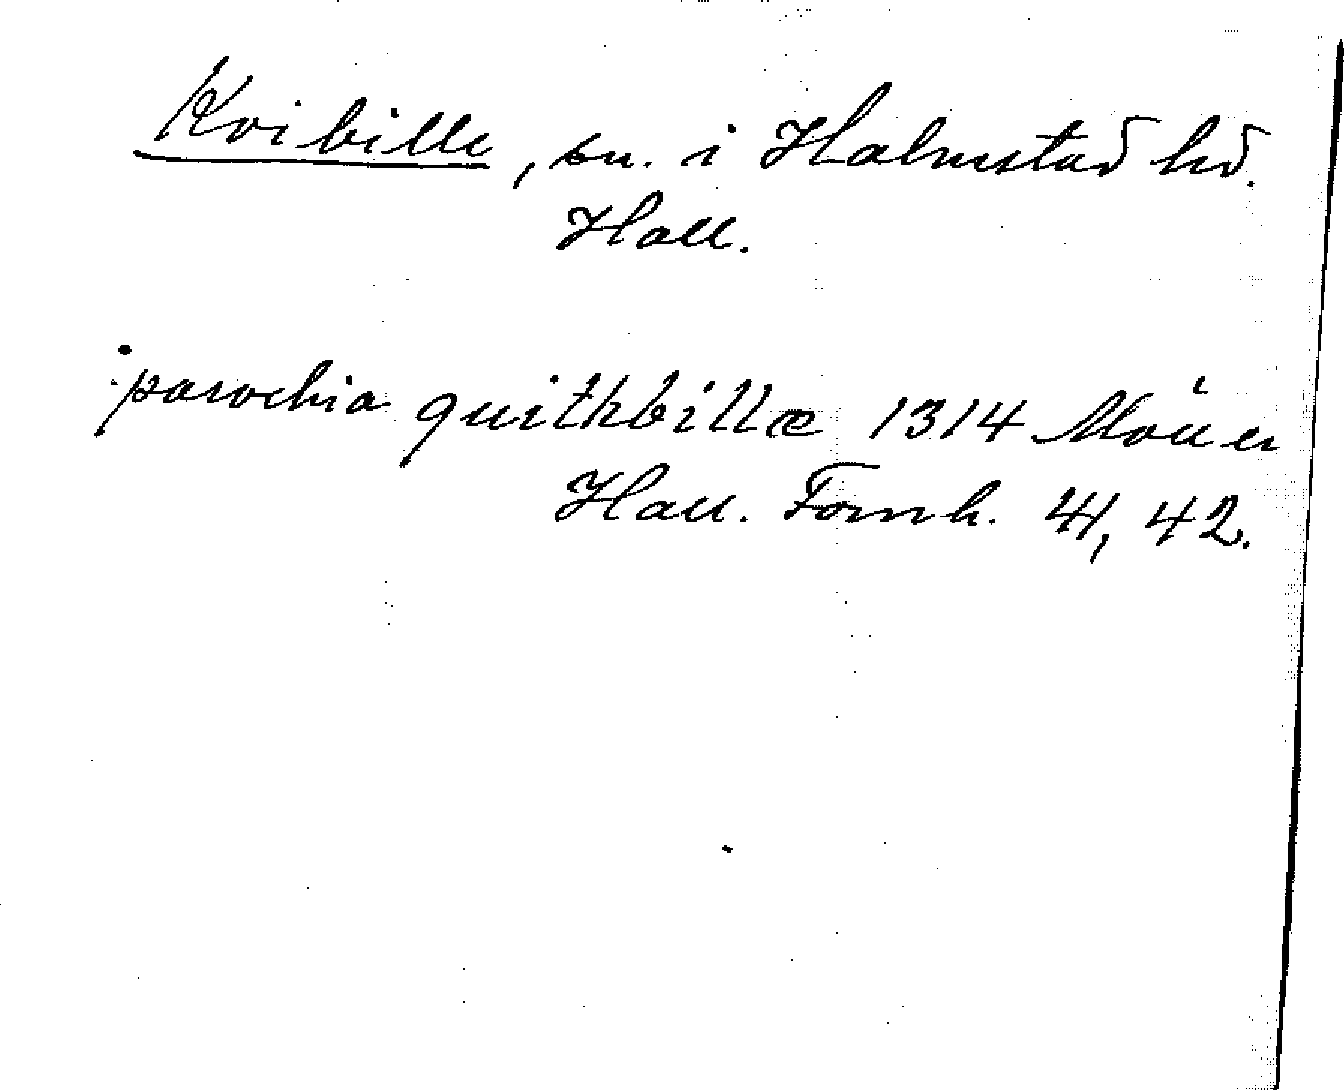 Kvibille, sn. i Halmstad hd.
Hall.
parochia quithbillæ 1314
Hall. Fornh. 41, 42.